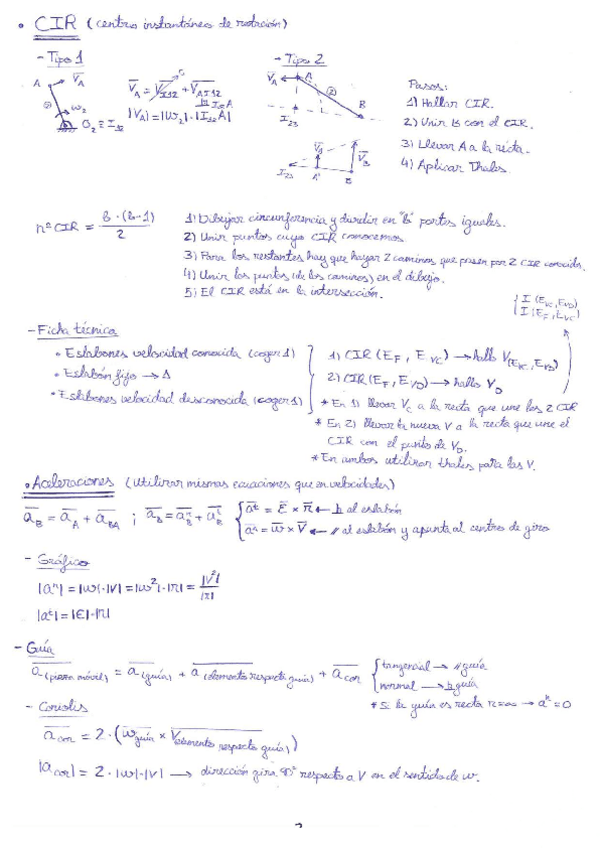 • CIR (centro instantáneo de rotación)
- Tipo 1
A V̅_A
② ω₂
O₂ ≡ I₁₂
V̅_A = V̅_I12 + V̅_AI12
0
⊥ I₁₂A
|V_A| = |ω₂|·|I₁₂A|
- Tipo 2
V̅_A A ② B
I₂₃
V̅_A V̅_B
I₂₃ A' B
Pasos:
1) Hallar CIR.
2) Unir B con el CIR.
3) Llevar A a la recta.
4) Aplicar Thales
nº CIR = b·(b-1) / 2
1) Dibujar circunferencia y dividir en "b" partes iguales.
2) Unir puntos cuyo CIR conocemos
3) Para los restantes hay que hayar 2 caminos que pasen por 2 CIR conocidos.
4) Unir los puntos (de los caminos) en el dibujo.
5) El CIR está en la intersección.
{ I (E_VC, E_VD)
I (E_F, E_VC)
- Ficha técnica
• Eslabones velocidad conocida (coger 1)
• Eslabón fijo → Δ
• Eslabones velocidad desconocida (coger 1)
1) CIR (E_F, E_VC) → hallo V(E_VC, E_VD)
2) CIR (E_F, E_VD) → hallo V_D
* En 1) llevar V_C a la recta que une los 2 CIR
* En 2) llevar la nueva V a la recta que une el
CIR con el punto de V_D.
* En ambos utilizar thales para las V.
• Aceleraciones (Utilizar mismas ecuaciones que en velocidades)
a̅_B = a̅_A + a̅_BA ; a̅_B = a̅_B^n + a̅_B^t { a̅^t = ε̅ × r̅ ← ⊥ al eslabón
a̅^n = ω̅ × V̅ ← // al eslabón y apunta al centro de giro
- Gráfico
|a^n| = |ω|·|V| = |ω²|·|r| = |V²| / |r|
|a^t| = |ε|·|r|
- Guía
a̅(pieza móvil) = a̅(guía) + a̅(elemento respecto guía) + a̅_cor { tangencial → // guía
normal → ⊥ guía
* Si la guía es recta r=∞ → a^n = 0
- Coriolis
a̅_cor = 2·(ω̅_guía × V̅(elemento respecto guía))
|a_cor| = 2·|ω|·|V| → dirección gira 90º respecto a V en el sentido de ω.